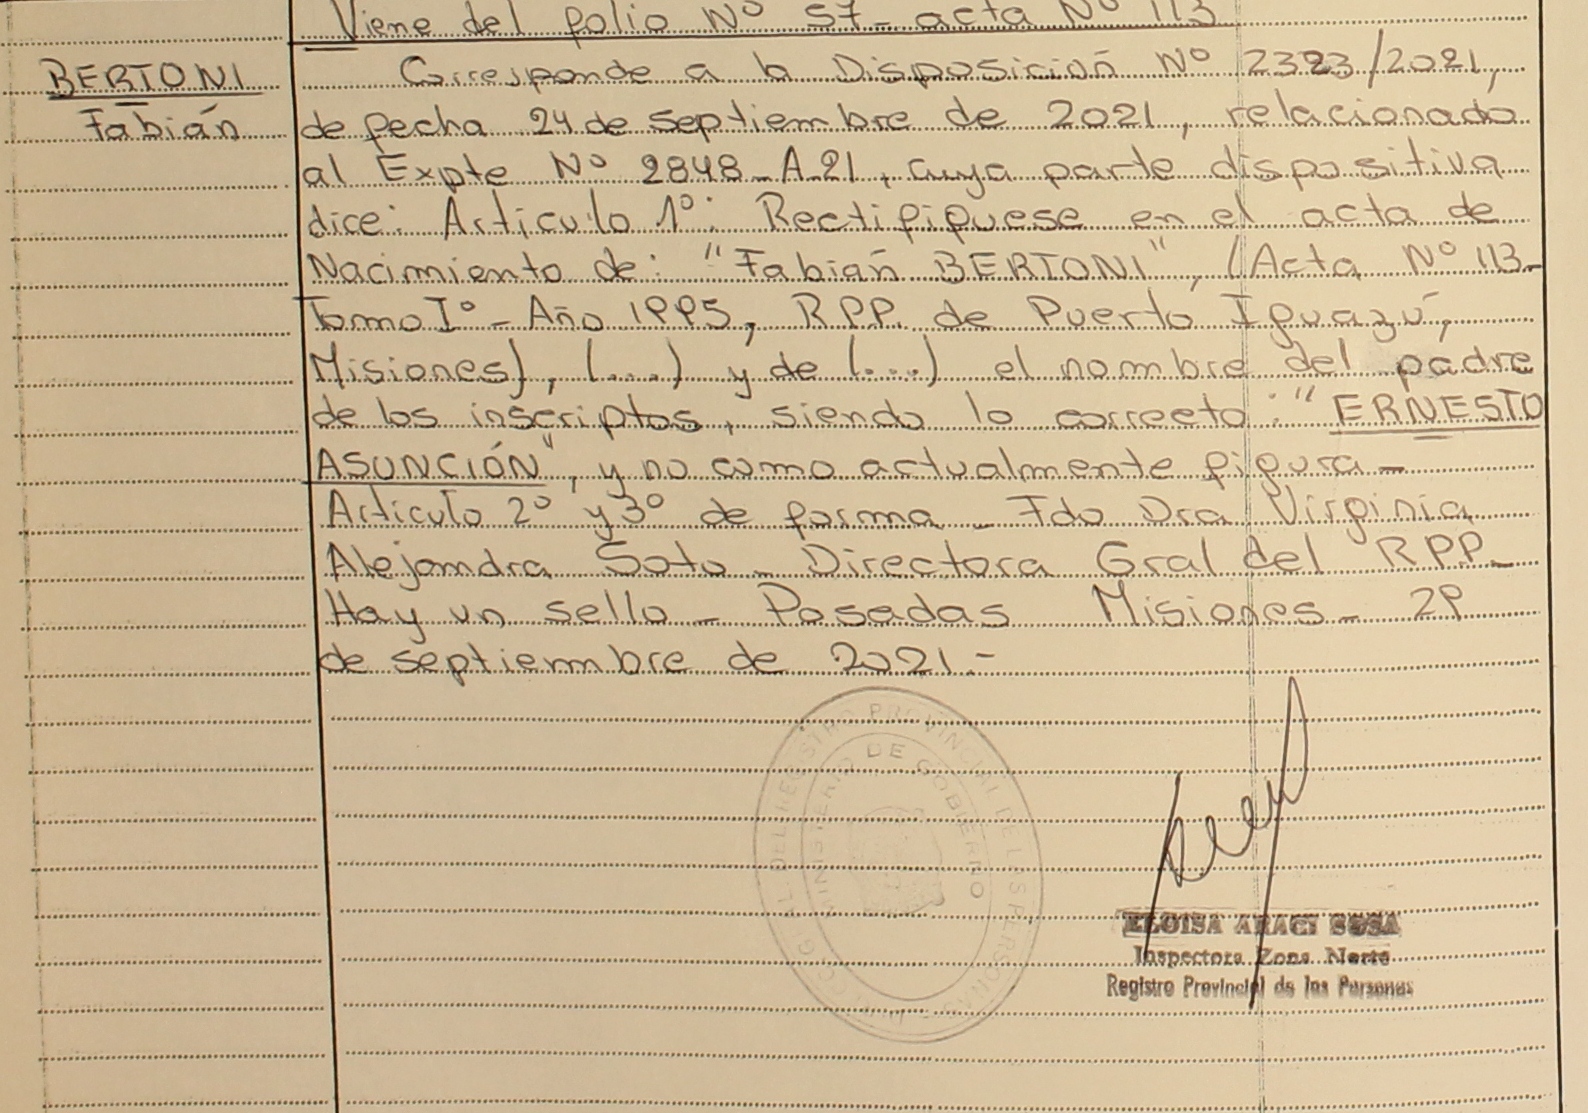 Viene del folio Nº 57 - acta Nº 113
BERTONI
Fabián
Corresponde a la Disposición Nº 2323/2021,
de fecha 24 de septiembre de 2021, relacionado
al Expte Nº 2848-A-21, cuya parte dispositiva
dice: Artículo 1º: Rectifíquese en el acta de
Nacimiento de: "Fabián BERTONI", (Acta Nº 113-
Tomo Iº - Año 1995, RPP. de Puerto Iguazú,
Misiones), (....) y de (....) el nombre del padre
de los inscriptos, siendo lo correcto: "ERNESTO
ASUNCIÓN", y no como actualmente figura -
Artículo 2º y 3º de forma - Fdo Dra Virginia
Alejandra Soto - Directora Gral del RPP -
Hay un sello - Posadas Misiones - 29
de septiembre de 2021.-
REGISTRO PROVINCIAL DE LAS PERSONAS
MINISTERIO DE GOBIERNO
ELOISA ARACI SOSA
Inspectora Zona Norte
Registro Provincial de las Personas